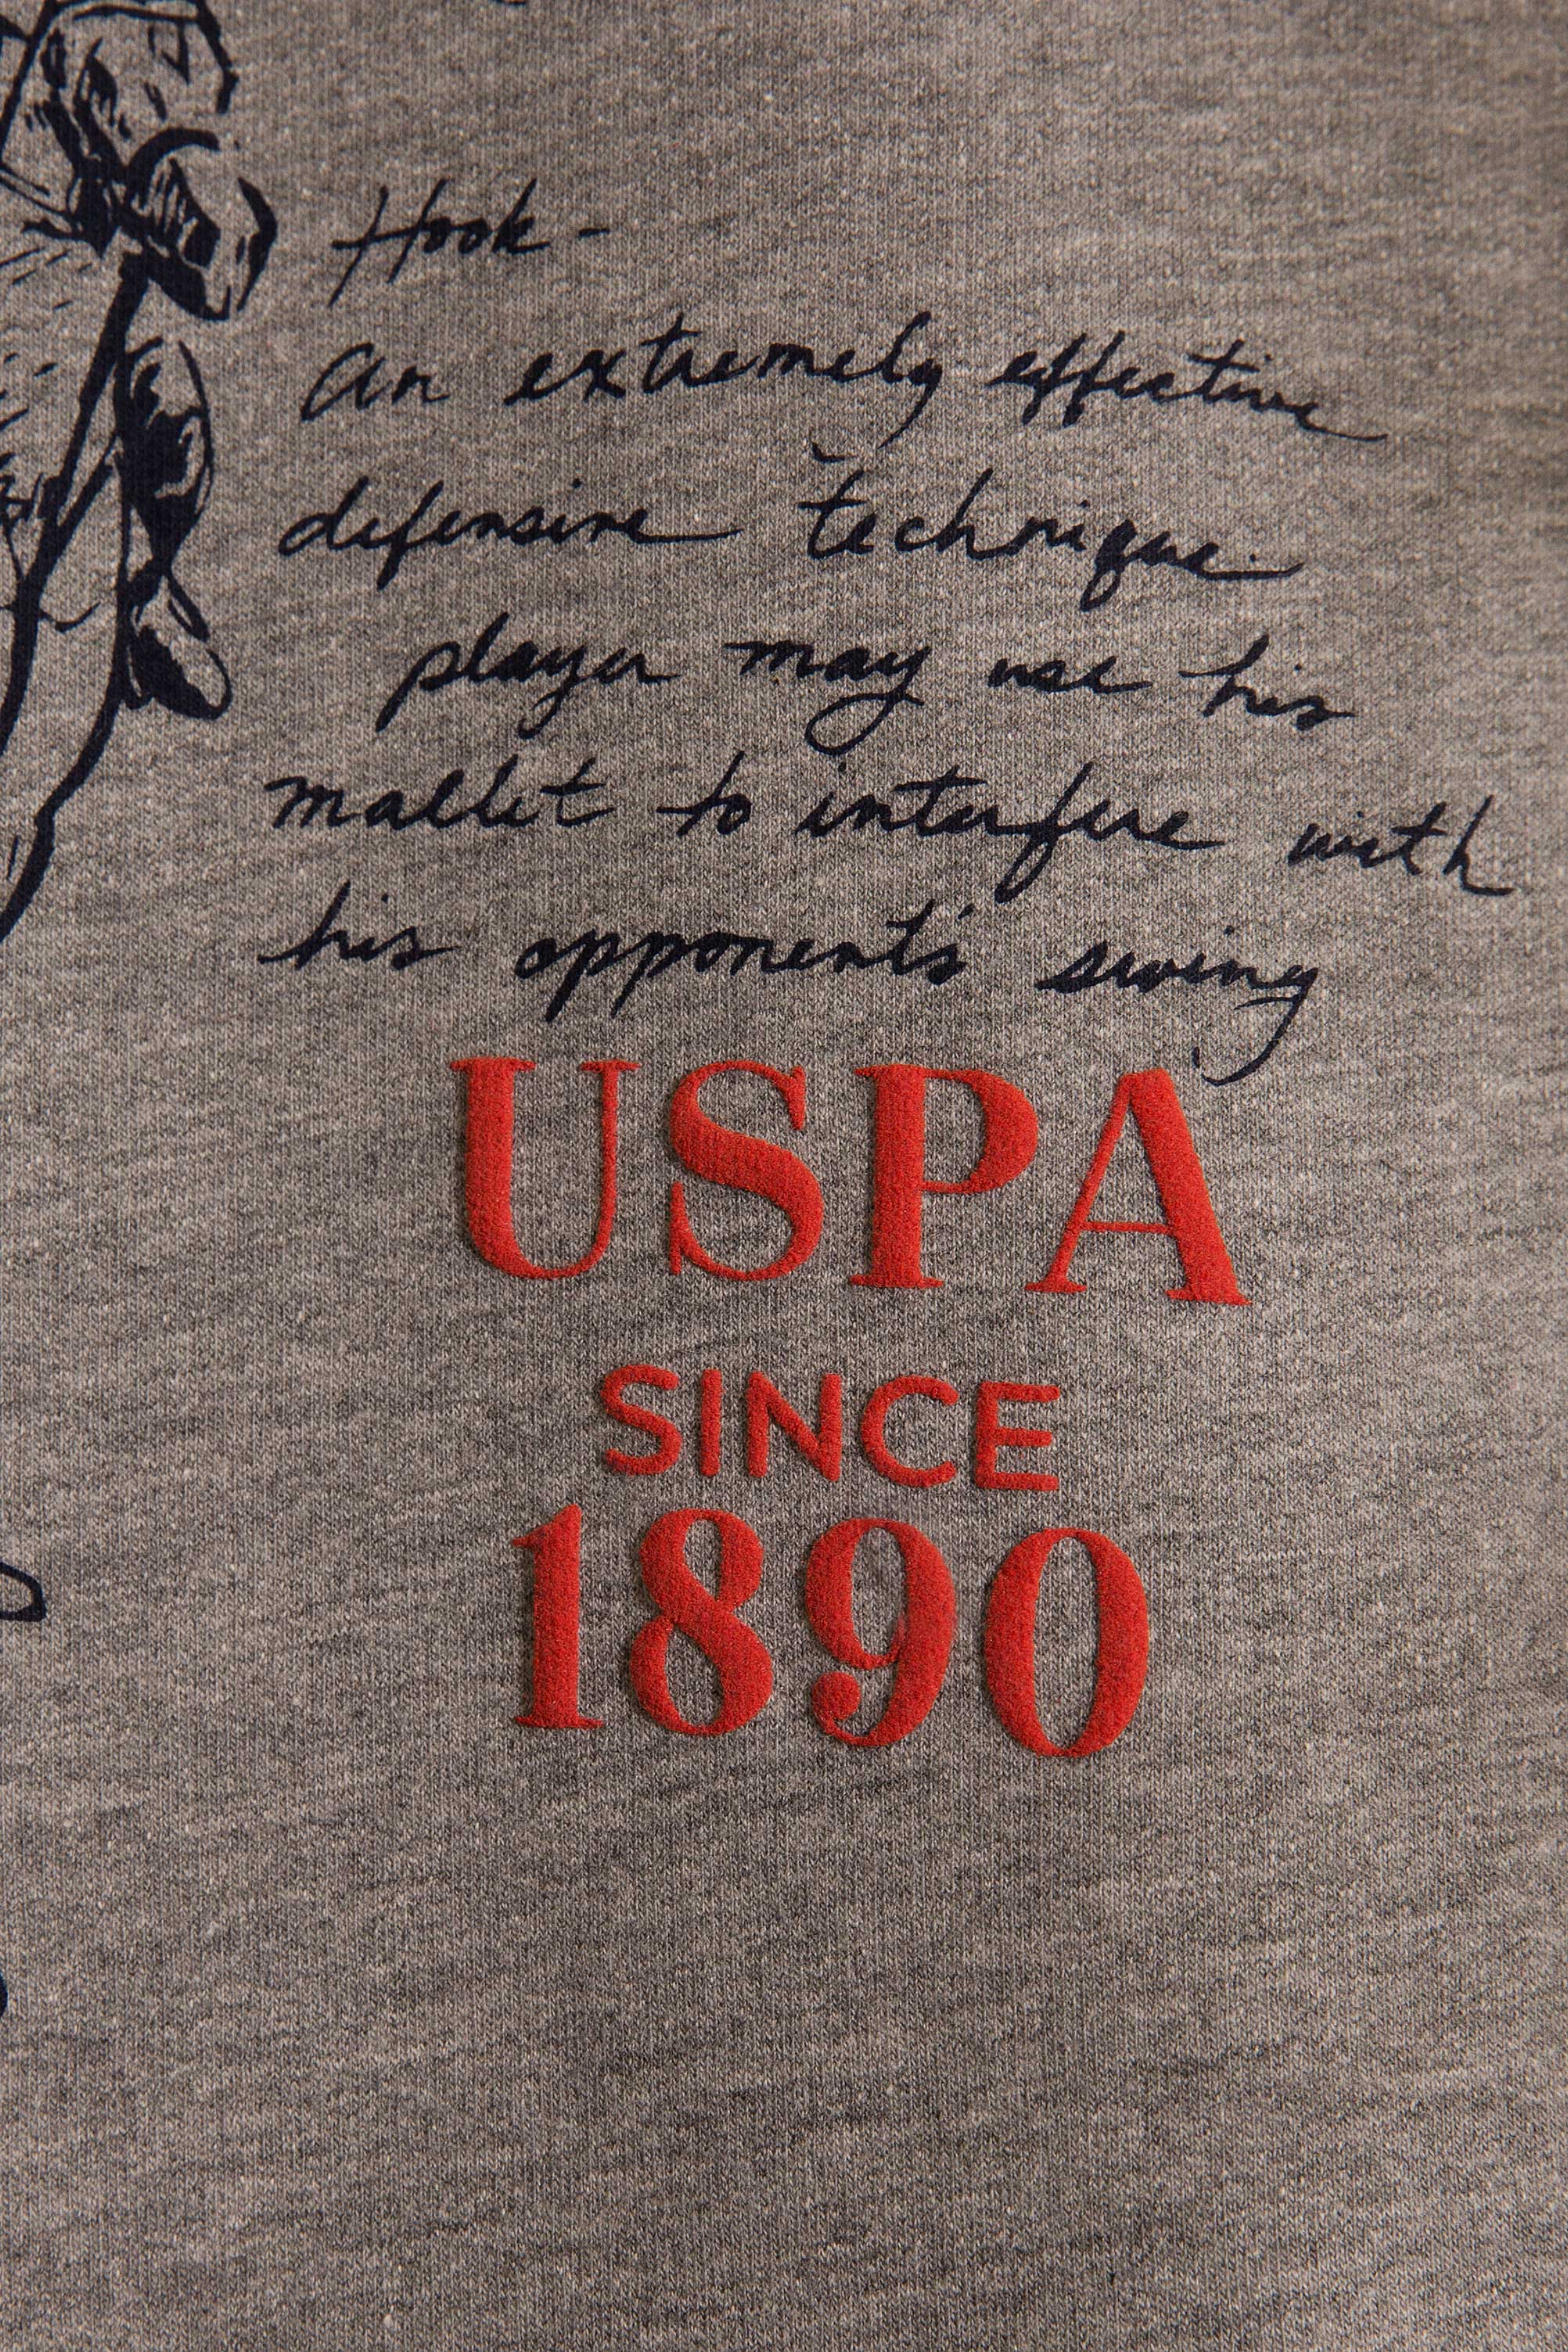 Hook -
An extremely effective
defensive technique.
player may use his
mallet to interfere with
his opponent's swing
USPA
SINCE
1890